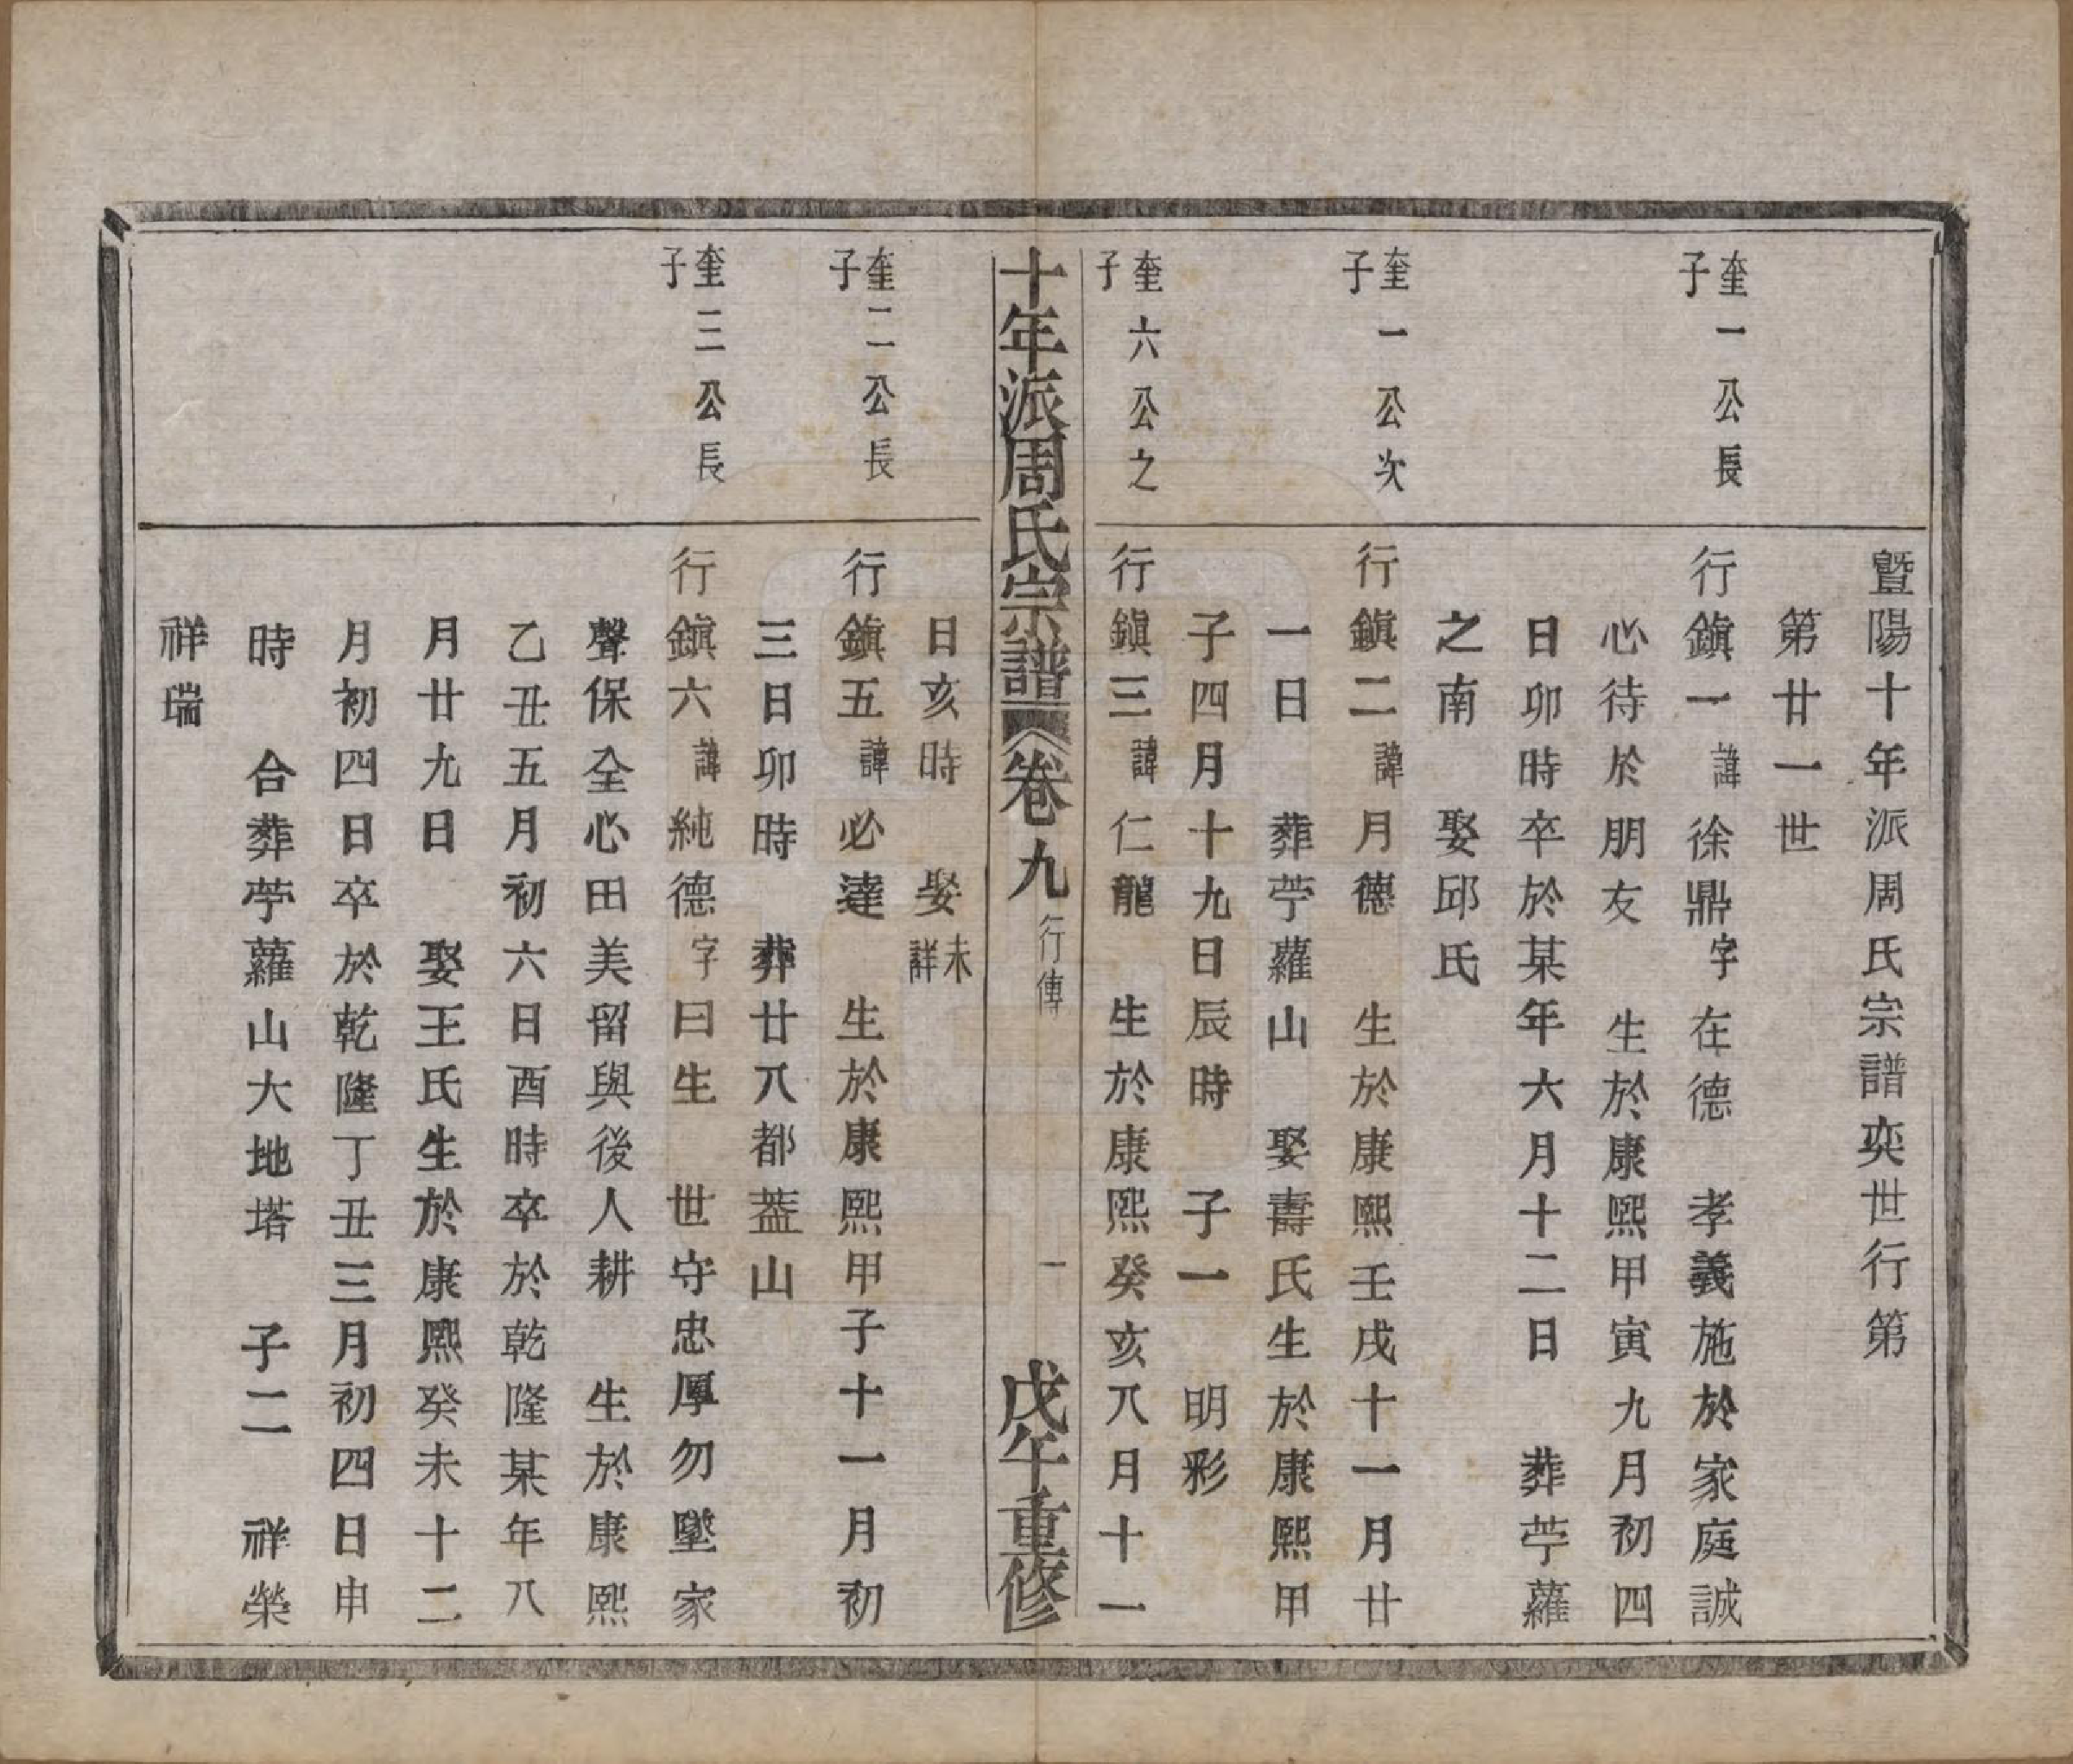 暨陽十年派周氏宗譜奕世行第
第廿一世
奎一公長子
行鎭一諱徐鼎字在德 孝義施於家庭誠
心待於朋友 生於康熙甲寅九月初四
日卯時卒於某年六月十二日 葬苧蘿
之南 娶邱氏
奎一公次子
行鎭二諱月德 生於康熙壬戌十一月廿
一日 葬苧蘿山 娶壽氏生於康熙甲
子四月十九日辰時 子一 明彩
奎六公之子
行鎭三諱仁龍 生於康熙癸亥八月十一
十年派周氏宗譜 卷九 行傳 一 戊午重修
日亥時 娶未詳
奎二公長子
行鎭五諱必達 生於康熙甲子十一月初
三日卯時 葬廿八都蓋山
奎三公長子
行鎭六諱純德字曰生 世守忠厚勿墜家
聲保全心田美留與後人耕 生於康熙
乙丑五月初六日酉時卒於乾隆某年八
月廿九日 娶王氏生於康熙癸未十二
月初四日卒於乾隆丁丑三月初四日申
時 合葬苧蘿山大地塔 子二 祥榮
祥瑞